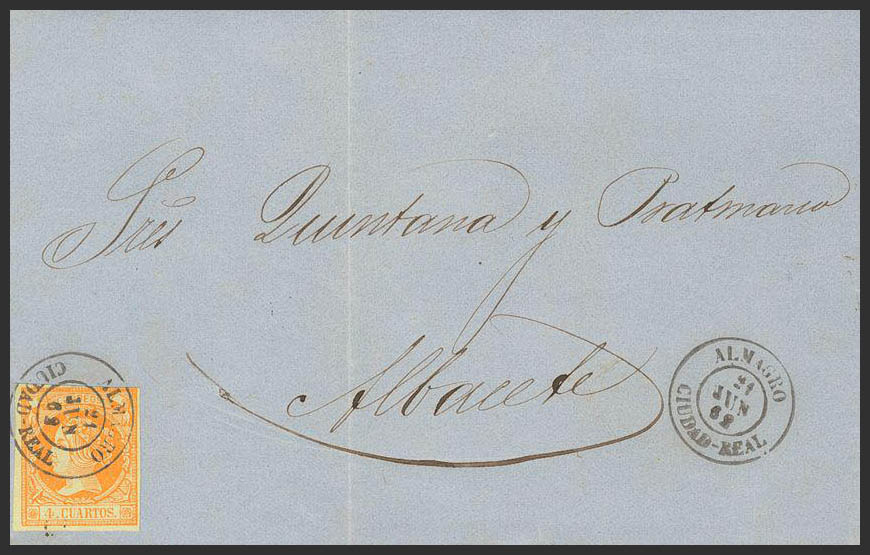 Sres Quintana y Pratmarso
Albacete
ALMAGRO
21
JUN
62
CIUDAD-REAL
ALMAGRO
21
JUN
62
CIUDAD-REAL
4 CUARTOS.